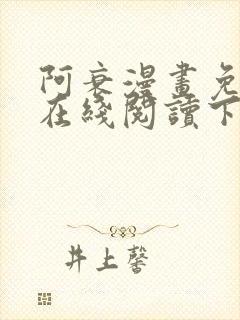 阿衰漫畫免
在綫閱讀下
井上馨